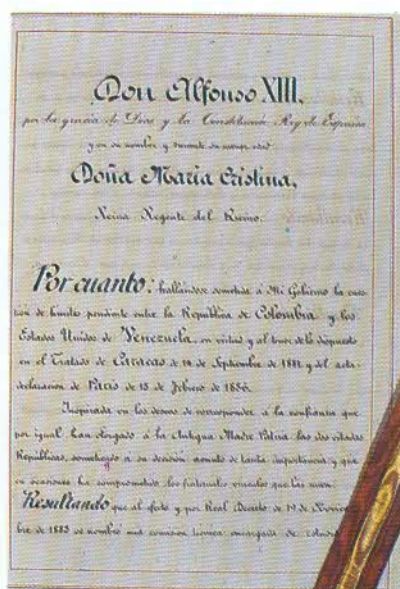 Don Alfonso XIII.
por la gracia de Dios y la Constitución Rey de España
y en su nombre y durante su menor edad
Doña María Cristina,
Reina Regente del Reino.
Por cuanto: hallándose sometida á Mi Gobierno la cues-
tión de límites pendiente entre la República de Colombia y los
Estados Unidos de Venezuela, en virtud y al tenor de lo dispuesto
en el Tratado de Caracas de 14 de Septiembre de 1881 y del acta-
declaración de París de 15 de febrero de 1886.
Inspirada en los deseos de corresponder á la confianza que
por igual han otorgado á la Antigua Madre Patria las dos citadas
Repúblicas, sometiendo a su decisión asunto de tanta importancia y que
en ocasiones ha comprometido los fraternales vínculos que las unen.
Resultando que al efecto y por Real Decreto de 19 de Noviem-
bre de 1883 se nombró una comisión técnica encargada de